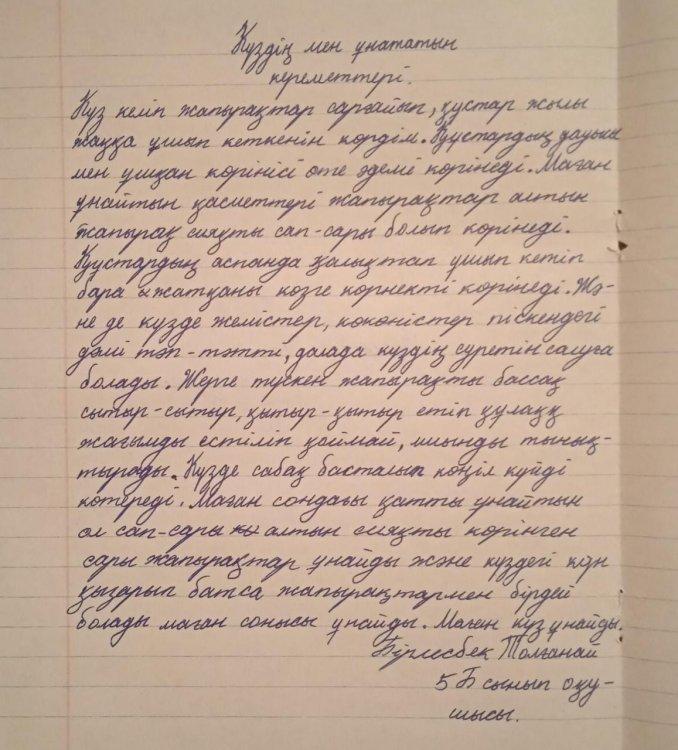 Күздің мен ұнататын
кереметтері.
Күз келіп жапырақтар сарғайып, құстар жылы
жаққа ұшып кеткенін көрдім. Құстардың дауысы
мен ұшқан көрінісі өте әдемі көрінеді. Маған
ұнайтын қасметтері жапырақтар алтын
жапырақ сияқты сап-сары болып көрінеді.
Құстардың аспанда қалықтап ұшып кетіп
бара жатқаны көзге көрнекті көрінеді. Жә-
не де күзде жемістер, көкөністер піскендегі
дәмі тәп-тәтті, далада күздің суретін салуға
болады. Жерге түскен жапырақты бассақ
сытыр-сытыр, қытыр-қытыр етіп құлаққ
жағымды естіліп қоймай, миыңды тынық-
тырады. Күзде сабақ басталып көңіл күйді
көтереді. Маған сондағы қатты ұнайтын
ол сап-сары алтын сияқты көрінген
сары жапырақтар ұнайды және күздегі күн
қызарып батса жапырақтармен бірдей
болады маған сонысы ұнайды. Маған күз ұнайды.
Толғанай
5 Б сынып оқу-
шысы.